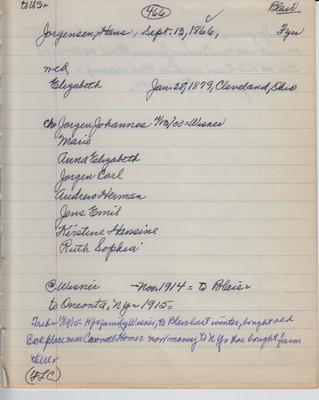 to US
466
Blair
Jorgensen, Hans, Sept. 13, 1866, Fyn
wed
Elizabeth Jan. 27, 1879, Cleveland, Ohio
ch Jorgen Johannes 11/10/00 = Wisner
Marie
Anna Elizabeth
Jorgen Carl
Andrew Herman
Jens Emil
Kirstine Hansine
Ruth Sophia
@ Wisner - Nov. 1914 = to Blair
to Oneonta, Ny - 1915 =
Trib = HJ & family Wisner, to Blair last winter, bought old
place near Home now moving to N.Y. Has bought farm
there